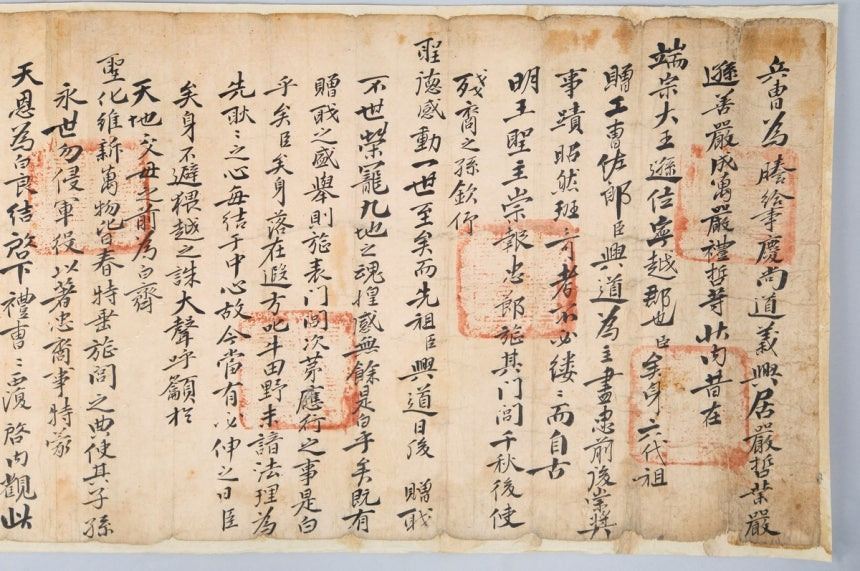 兵曹為謄給事慶尚道義興居嚴哲業嚴
遜善嚴成萬嚴禮哲等狀內昔在
端宗大王遜位寧越郡也臣矣身六代祖
贈工曹佐郎臣興道為主盡忠前後崇奬
事蹟昭然班班可考不必縷縷而自古
明王聖主崇報忠節旌其門閭千秋後使
殘裔之孫欽仰
聖德感動一世至矣而先祖臣興道日後贈職
不世榮寵九地之魂惶感無餘是白乎矣既有
贈職之盛舉則旌表門閭次第應行之事是白
乎矣臣矣身落在遐方叱牛田野未諳法理為
先耿耿之心每結于中心故今當有必伸之日臣
矣身不避猥越之誅大聲呼籲於
天地父母之前為白齊
聖化維新萬物皆春特垂旌閭之典使其子孫
永世勿侵軍役以著忠裔事特蒙
天恩為白良結啓下禮曹禮曹覆啓內觀此